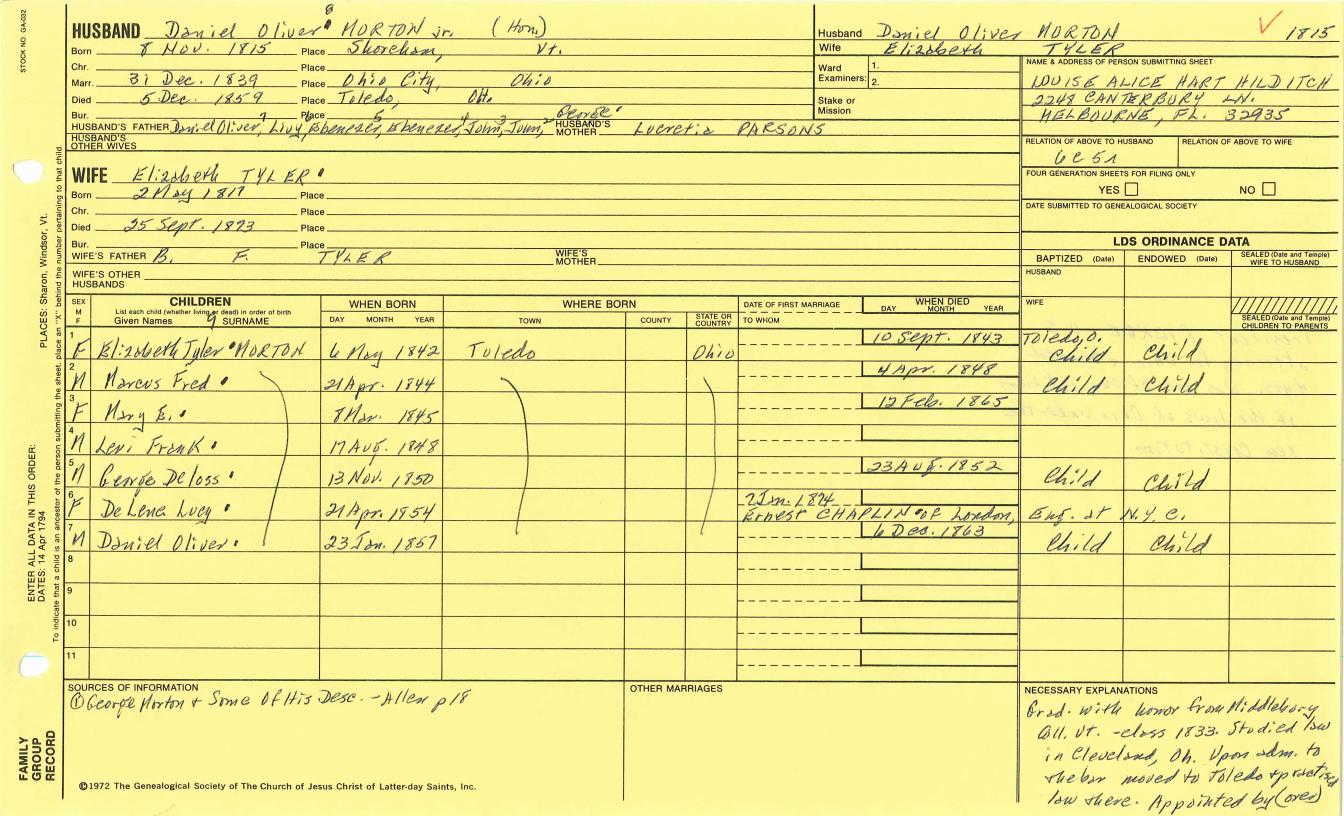 STOCK NO. GA-032
8
HUSBAND Daniel Oliver MORTON jr. (Hon)
Born 8 Nov. 1815 Place Shoreham, Vt.
Chr. Place
Marr. 31 Dec. 1839 Place Ohio City, Ohio
Died 5 Dec. 1859 Place Toledo, Oh.
Bur. Place
HUSBAND'S FATHER Daniel Oliver,7 Livy,6 Ebenezer,5 Ebenezer,4 John,3 John,2 George1 HUSBAND'S MOTHER Lucretia PARSONS
HUSBAND'S OTHER WIVES
WIFE Elizabeth TYLER
Born 2 May 1817 Place
Chr. Place
Died 25 Sept. 1873 Place
Bur. Place
WIFE'S FATHER B. F. TYLER WIFE'S MOTHER
WIFE'S OTHER HUSBANDS
Husband Daniel Oliver MORTON 1815
Wife Elizabeth TYLER
Ward Examiners: 1. 2.
Stake or Mission
NAME & ADDRESS OF PERSON SUBMITTING SHEET
LOUISE ALICE HART HILDITCH
2248 CANTERBURY LN.
MELBOURNE, FL. 32935
RELATION OF ABOVE TO HUSBAND RELATION OF ABOVE TO WIFE
6C5R
FOUR GENERATION SHEETS FOR FILING ONLY
YES NO
DATE SUBMITTED TO GENEALOGICAL SOCIETY
LDS ORDINANCE DATA
BAPTIZED (Date) ENDOWED (Date) SEALED (Date and Temple) WIFE TO HUSBAND
HUSBAND
WIFE
SEALED (Date and Temple) CHILDREN TO PARENTS
SEX M F CHILDREN WHEN BORN WHERE BORN DATE OF FIRST MARRIAGE WHEN DIED
List each child (whether living or dead) in order of birth
Given Names 9 SURNAME DAY MONTH YEAR TOWN COUNTY STATE OR COUNTRY TO WHOM DAY MONTH YEAR
1 F Elizabeth Tyler MORTON 6 May 1842 Toledo Ohio 10 Sept. 1843 Toledo, O. Child Child
2 M Marcus Fred 21 Apr. 1844 4 Apr. 1848 Child Child
3 F Mary E. 8 Mar. 1845 12 Feb. 1865
4 M Levi Frank 17 Aug. 1848
5 M George Deloss 13 Nov. 1850 23 Aug. 1852 Child Child
6 F De Lene Lucy 21 Apr. 1854 7 Jan. 1874 Ernest CHAPLIN of London, Eng. at N.Y.C.
7 M Daniel Oliver 23 Jan. 1857 6 Dec. 1863 Child Child
8
9
10
11
SOURCES OF INFORMATION
① George Morton & Some Of His Desc. - Allen p 18
OTHER MARRIAGES
NECESSARY EXPLANATIONS
Grad. with honor from Middlebury
Coll. Vt. - class 1833. Studied law
in Cleveland, Oh. Upon adm. to
the bar moved to Toledo & practised
law there. Appointed by (over)
©1972 The Genealogical Society of The Church of Jesus Christ of Latter-day Saints, Inc.
FAMILY GROUP RECORD
ENTER ALL DATA IN THIS ORDER:
DATES: 14 Apr 1794
PLACES: Sharon, Windsor, Vt.
To indicate that a child is an ancestor of the person submitting the sheet, place an "X" behind the number pertaining to that child.